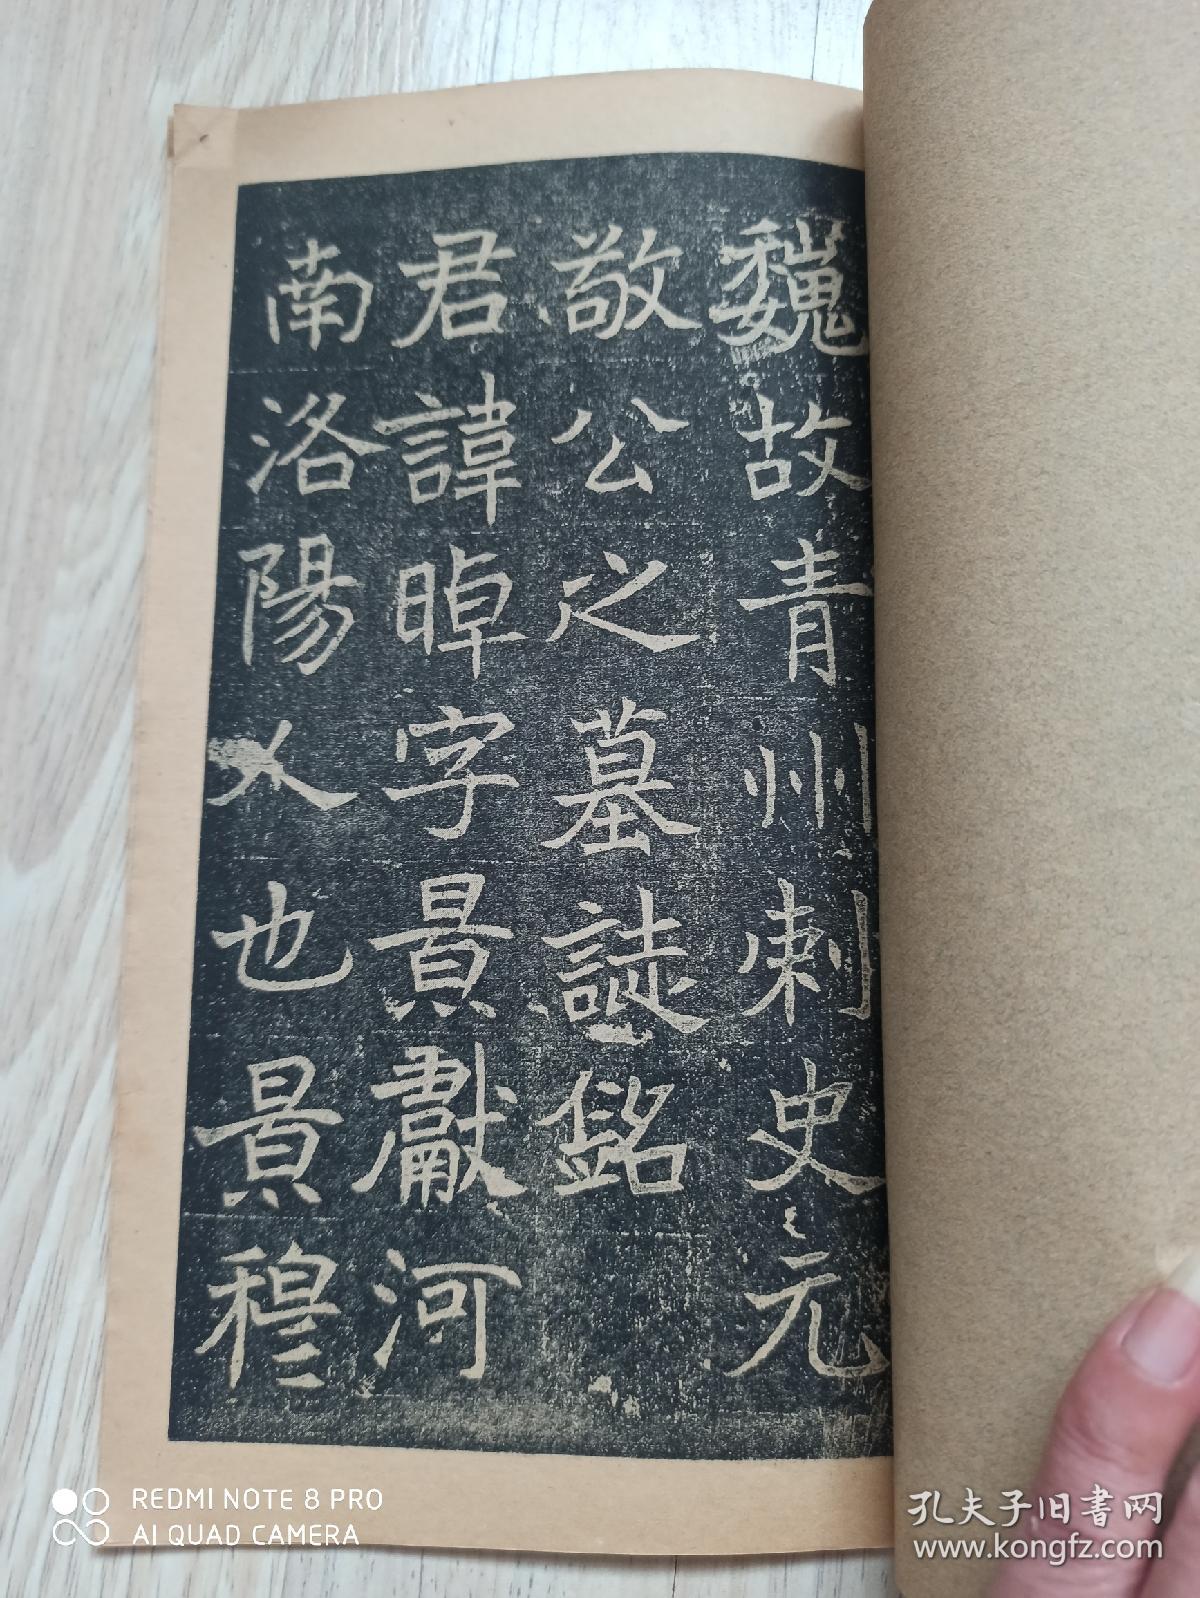 魏故青州刺史元
敬公之墓誌銘
君諱晫字景獻河
南洛陽人也景穆
REDMI NOTE 8 PRO
AI QUAD CAMERA
孔夫子旧書网
www.kongfz.com